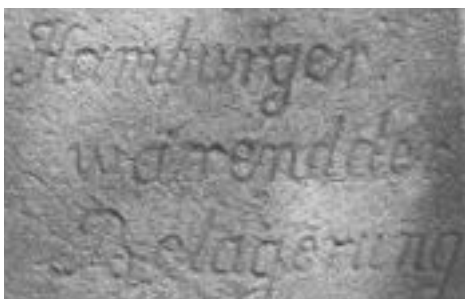 Hamburger
wärend der
Belagerung